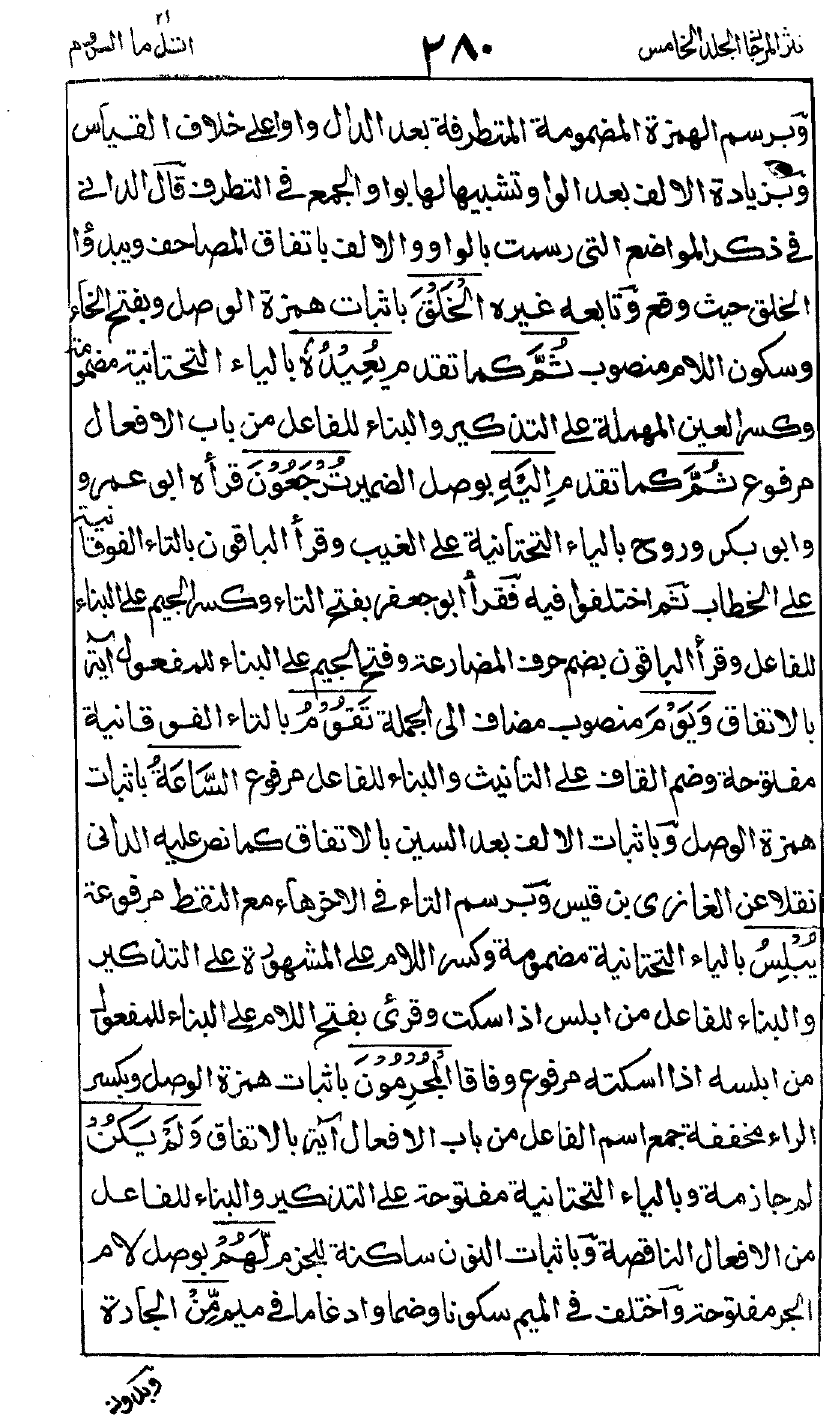 نثر المرجان المجلد الخامس ٣٨٠ اتل ما ٢١
وبرسم الهمزة المضمومة المتطرفة بعد الدال واوا على خلاف القياس
وبزيادة الالف بعد الواو تشبيها لها بواو الجمع فى التطرف قال الدانى
فى ذكر المواضع التى رسمت بالواو والالف باتفاق المصاحف ويبدؤا
الخلق حيث وقع وتابعه غيره الْخَلْقَ باثبات همزة الوصل وبفتح الخاء
وسكون اللام منصوب ثُمَّ كما تقدم يُعِيْدُهٗ بالياء التحتانية مضمومة
وكسر العين المهملة على التذكير والبناء للفاعل من باب الافعال
مرفوع ثُمَّ كما تقدم اِلَيْهِ بوصل الضمير تُرْجَعُوْنَ قرأه ابو عمرو و
وابو بكر وروح بالياء التحتانية على الغيب وقرأ الباقون بالتاء الفوقانية
على الخطاب ثم اختلفوا فيه فقرأ ابو جعفر بفتح التاء وكسر الجيم على البناء
للفاعل وقرأ الباقون بضم حرف المضارعة وفتح الجيم على البناء للمفعول آية
بالاتفاق وَيَوْمَ منصوب مضاف الى الجملة تَقُوْمُ بالتاء الفوقانية
مفتوحة وضم القاف على التانيث والبناء للفاعل مرفوع السَّاعَةُ باثبات
همزة الوصل وباثبات الالف بعد السين بالاتفاق كما نص عليه الدانى
نقلا عن الغازى بن قيس وبرسم التاء فى الاخرهاء مع النقط مرفوعة
يُبْلِسُ بالياء التحتانية مضمومة وكسر اللام على المشهورة على التذكير
والبناء للفاعل من ابلس اذا سكت وقرئ بفتح اللام على البناء للمفعول
من ابلسه اذا اسكته مرفوع وفاقا الْمُجْرِمُوْنَ باثبات همزة الوصل وبكسر
الراء مخففة جمع اسم الفاعل من باب الافعال آية بالاتفاق وَلَمْ يَكُنْ
لم جازمة وبالياء التحتانية مفتوحة على التذكير والبناء للفاعل
من الافعال الناقصة وباثبات النون ساكنة للجزم لَّهُمْ بوصل لام
الجر مفتوحة واختلف فى الميم سكونا وضما وادغاما فى ميم مِّنْ الجارة